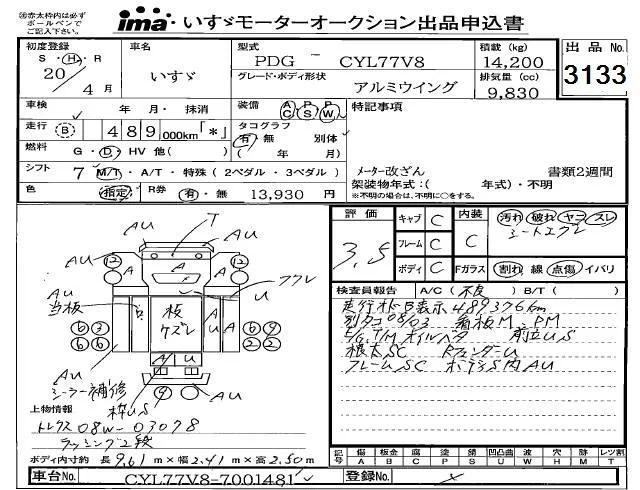 ㊟赤太枠内は必ず
ボールペンで
ご記入下さい。
ima いすゞモーターオークション出品申込書
初度登録
S・H・R
20/4月
車名
いすゞ
型式
PDG — CYL77V8
グレード・ボディ形状
アルミウイング
積載 (kg)
14,200
排気量 (cc)
9,830
出品 No.
3133
車検
年 月・抹消
装備
A P P
C S W
特記事項
走行 B 489 000km「*」
タコグラフ
有・無 別体
( 年 月)
燃料 G・D・HV 他( )
シフト 7 M/T・A/T・特殊(2ペダル・3ペダル)
メーター改ざん 書類2週間
架装物年式:( 年式)・不明
※不明の場合は、不明に○をする。
色 指定 R券 有・無 13,930 円
評価
3.5
キャブ C
フレーム C
ボディ C
内装
C
Fガラス
汚れ 破れ ヤコ スレ
シートコゲレ
割れ 線 点傷 イバリ
検査員報告 A/C(不良) B/T( )
走行オドB表示489376km
別タコ08/03 看板M PM
E/G,T/M オイルベタ 前立US
根太SC RフェンダーU
フレームSC ホデーS内AU
AU
T
AU
AU
12
12
フクレ
U
AU
当板
ロ
板
ケズレ
A
U
A
A
6
3
2
2
6
9
2
2
AU
シーラー補修
枠US
A
U
9
AU
上物情報
トレクス08W-03078
ラッシング2段
ボディ内寸約 長9.61m×幅2.41m×高2.50m
記号 傷 板金 腐 塗 錆 凹凸曲 波 穴 跡 レツ割
A B C P S U W H M T
車台No. CYL77V8-7001481
登録No.